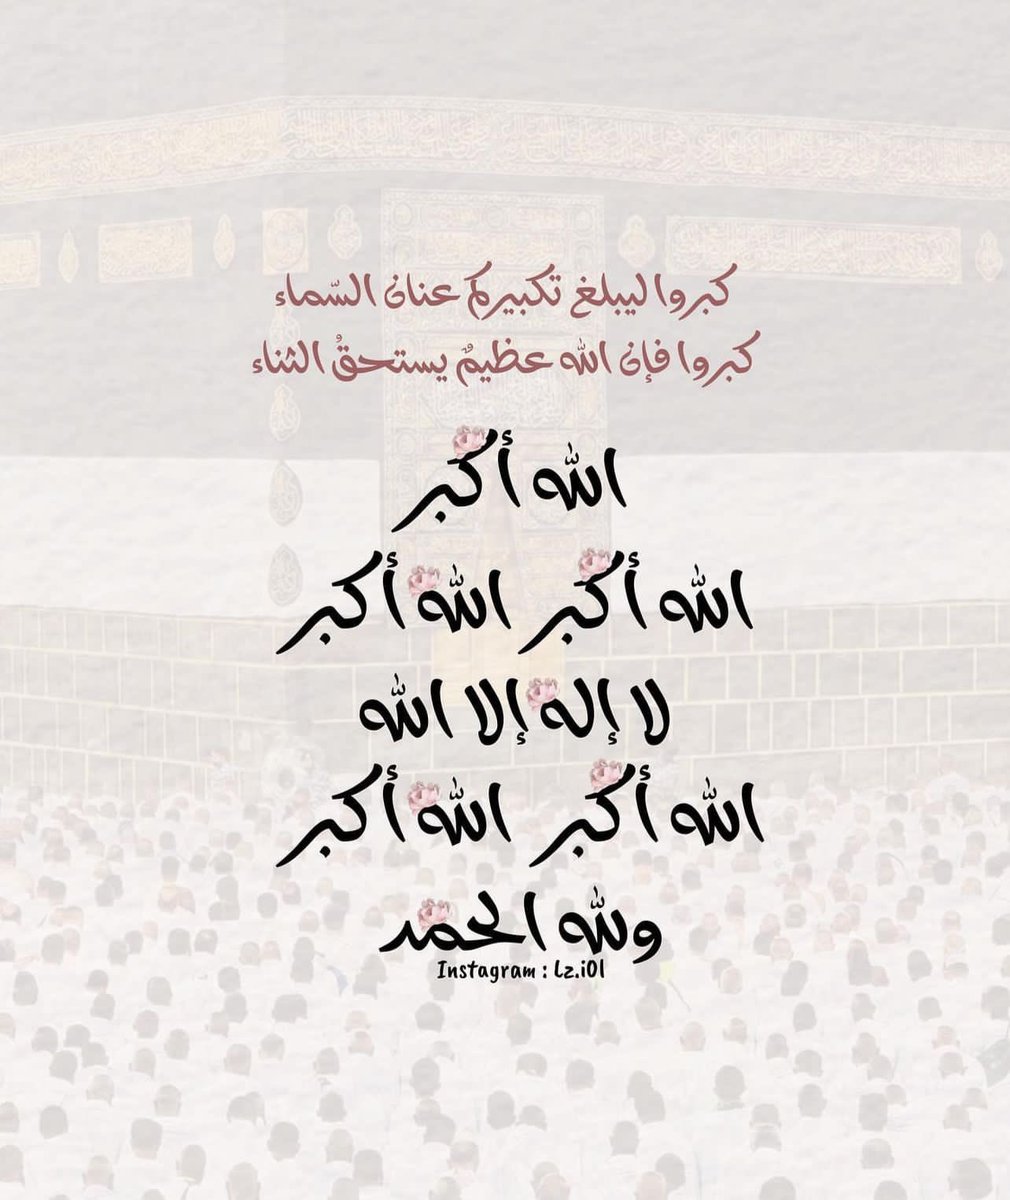 كبروا ليبلغ تكبيركم عنان السّماء
كبروا فإن الله عظيمٌ يستحقُ الثناء
الله أكبر
الله أكبر الله أكبر
لا إله إلا الله
الله أكبر الله أكبر
ولله الحمد
Instagram : Lz.i0l